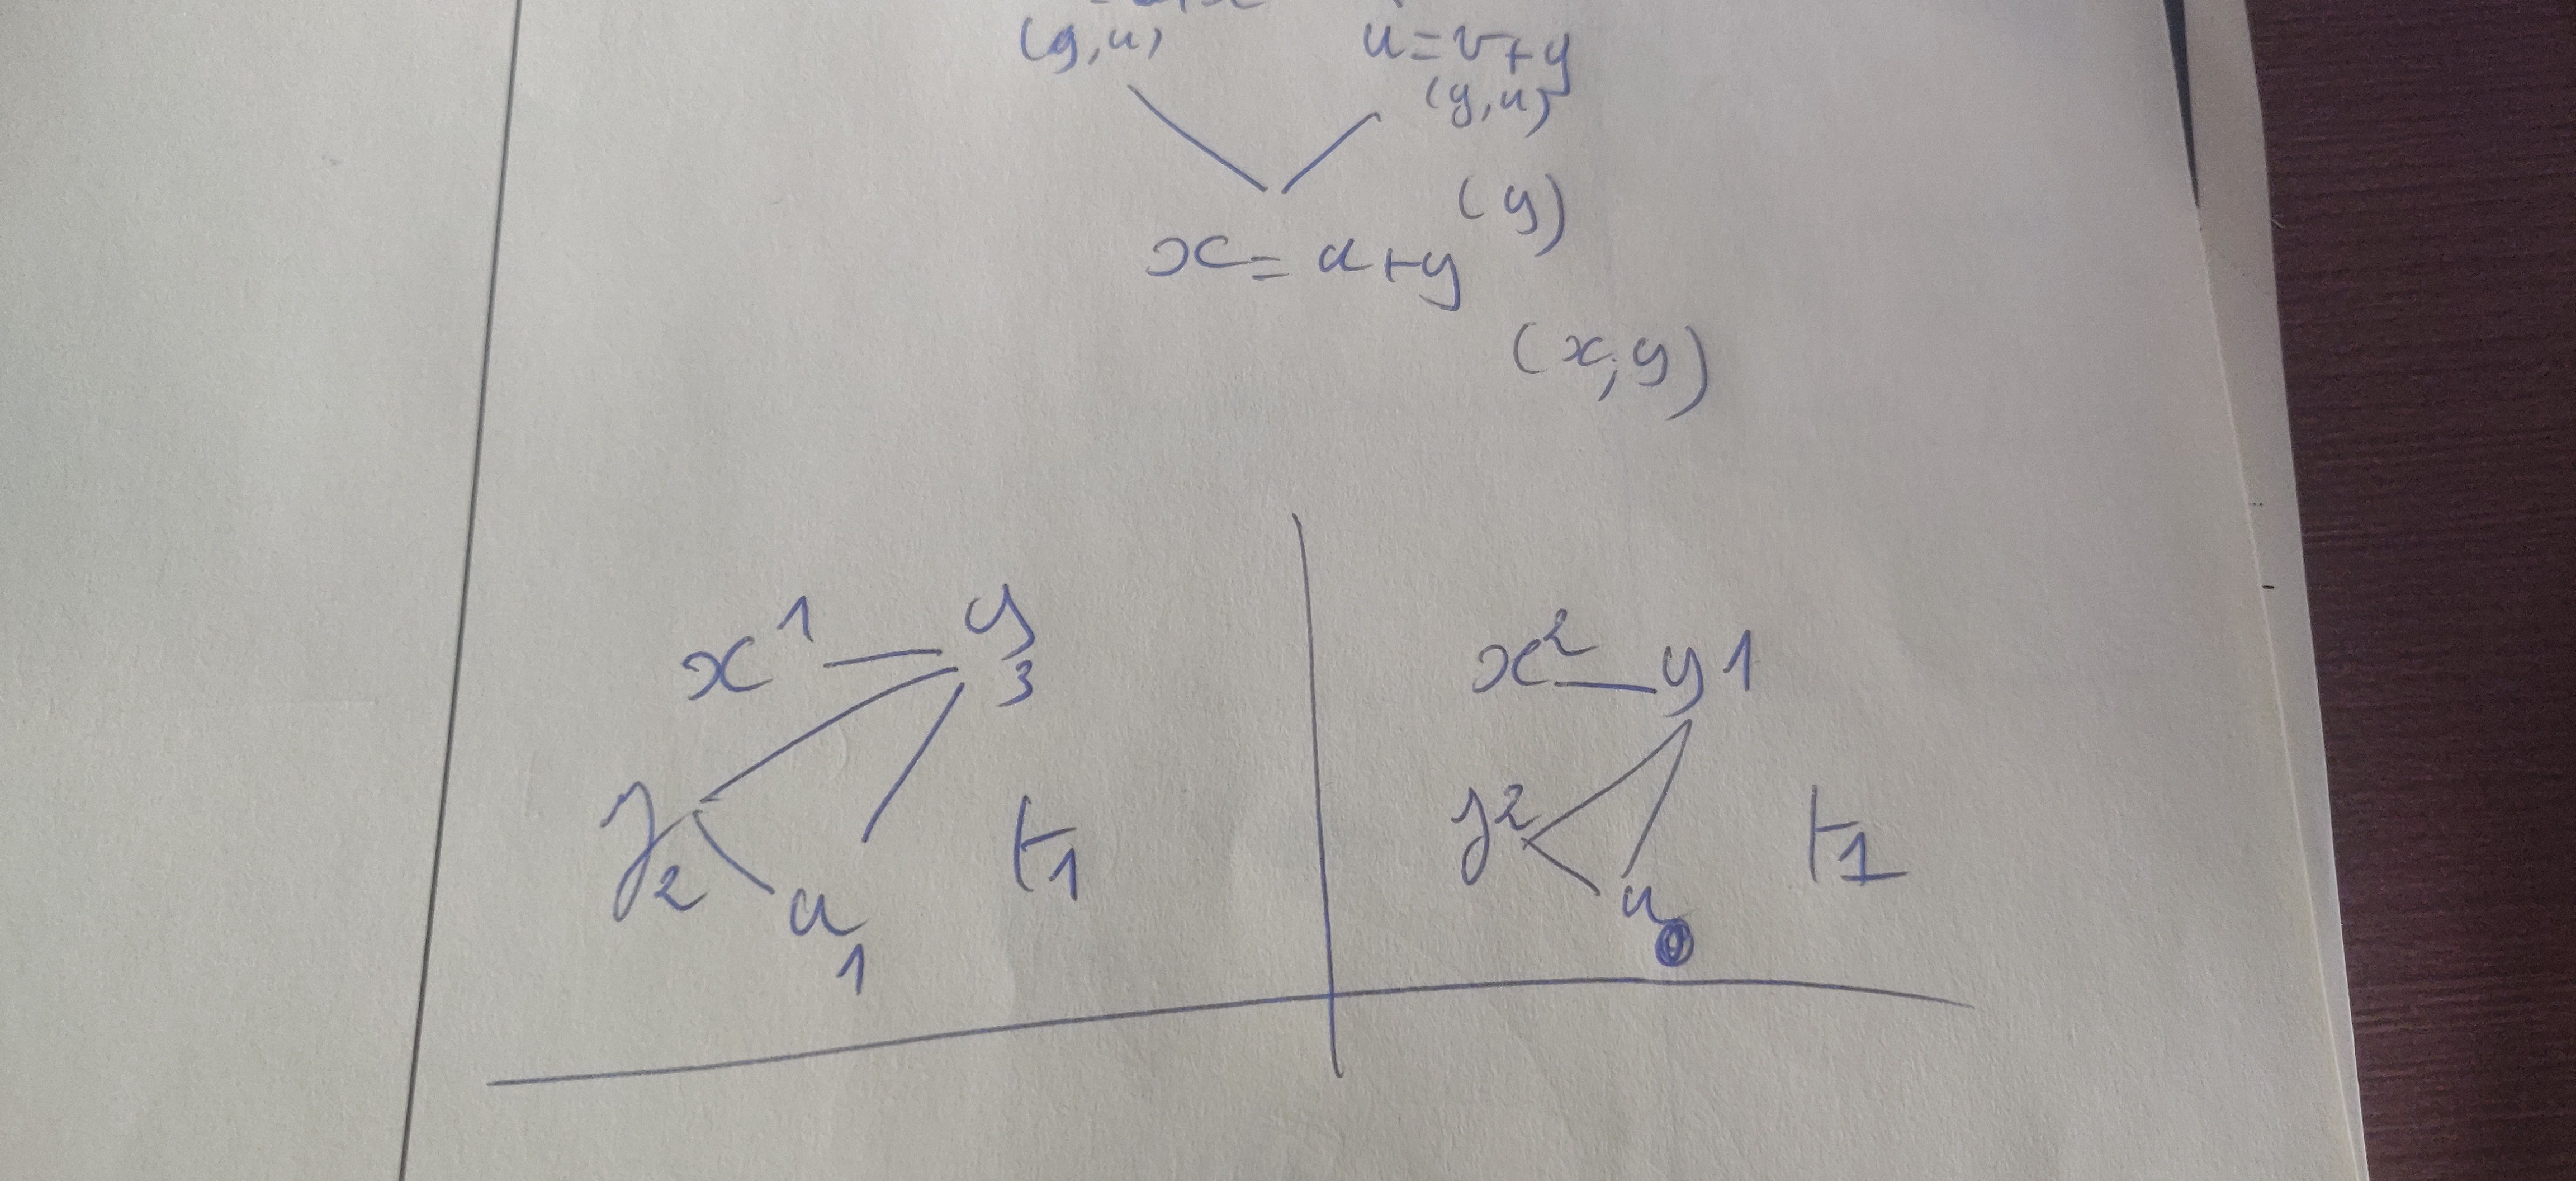 (y,u)
u=v+y
(y,u)
(y)
x=u+y
(x,y)
x 1 y 3
z 2 u 1 t 1
x 2 y 1
z 2 u 0 t 1